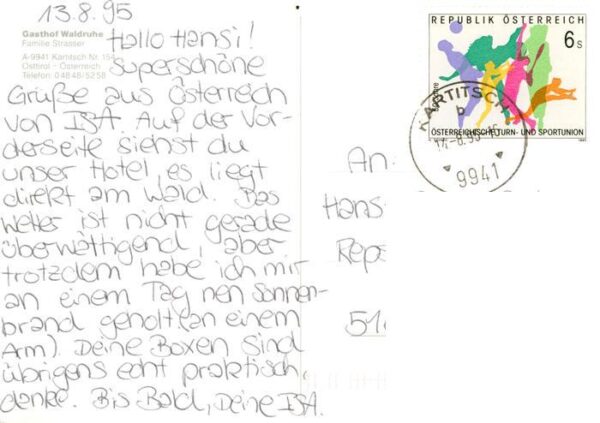 13.8.95
Gasthof Waldruhe
Familie Strasser
A-9941 Kartitsch Nr. 154
Osttirol - Österreich
Telefon: 04848/5258
Hallo Hansi!
Superschöne
Grüße aus Österreich
von ISA. Auf der Vor-
derseite siehst du
unser Hotel, es liegt
direkt am Wald. Das
Wetter ist nicht gerade
überwältigend, aber
trotzdem habe ich mir
an einem Tag nen Sonnen-
brand geholt (an einem
Arm). Deine Boxen sind
übrigens echt praktisch,
danke. Bis Bald, Deine ISA.
REPUBLIK ÖSTERREICH
6 S
ÖSTERREICHISCHE TURN- UND SPORTUNION
KARTITSCH
b
14.-8.95-15
9941
An:
Hans
Repe
51